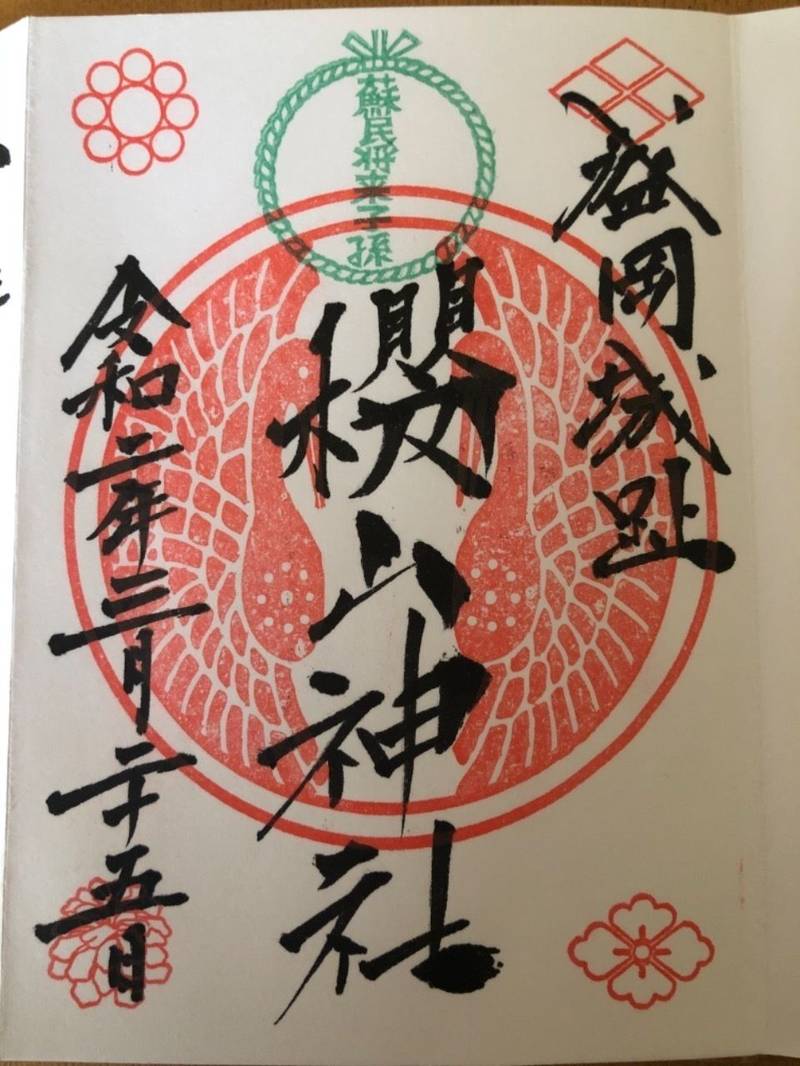 盛岡城趾
蘇民将来子孫
櫻山神社
令和二年三月二十五日